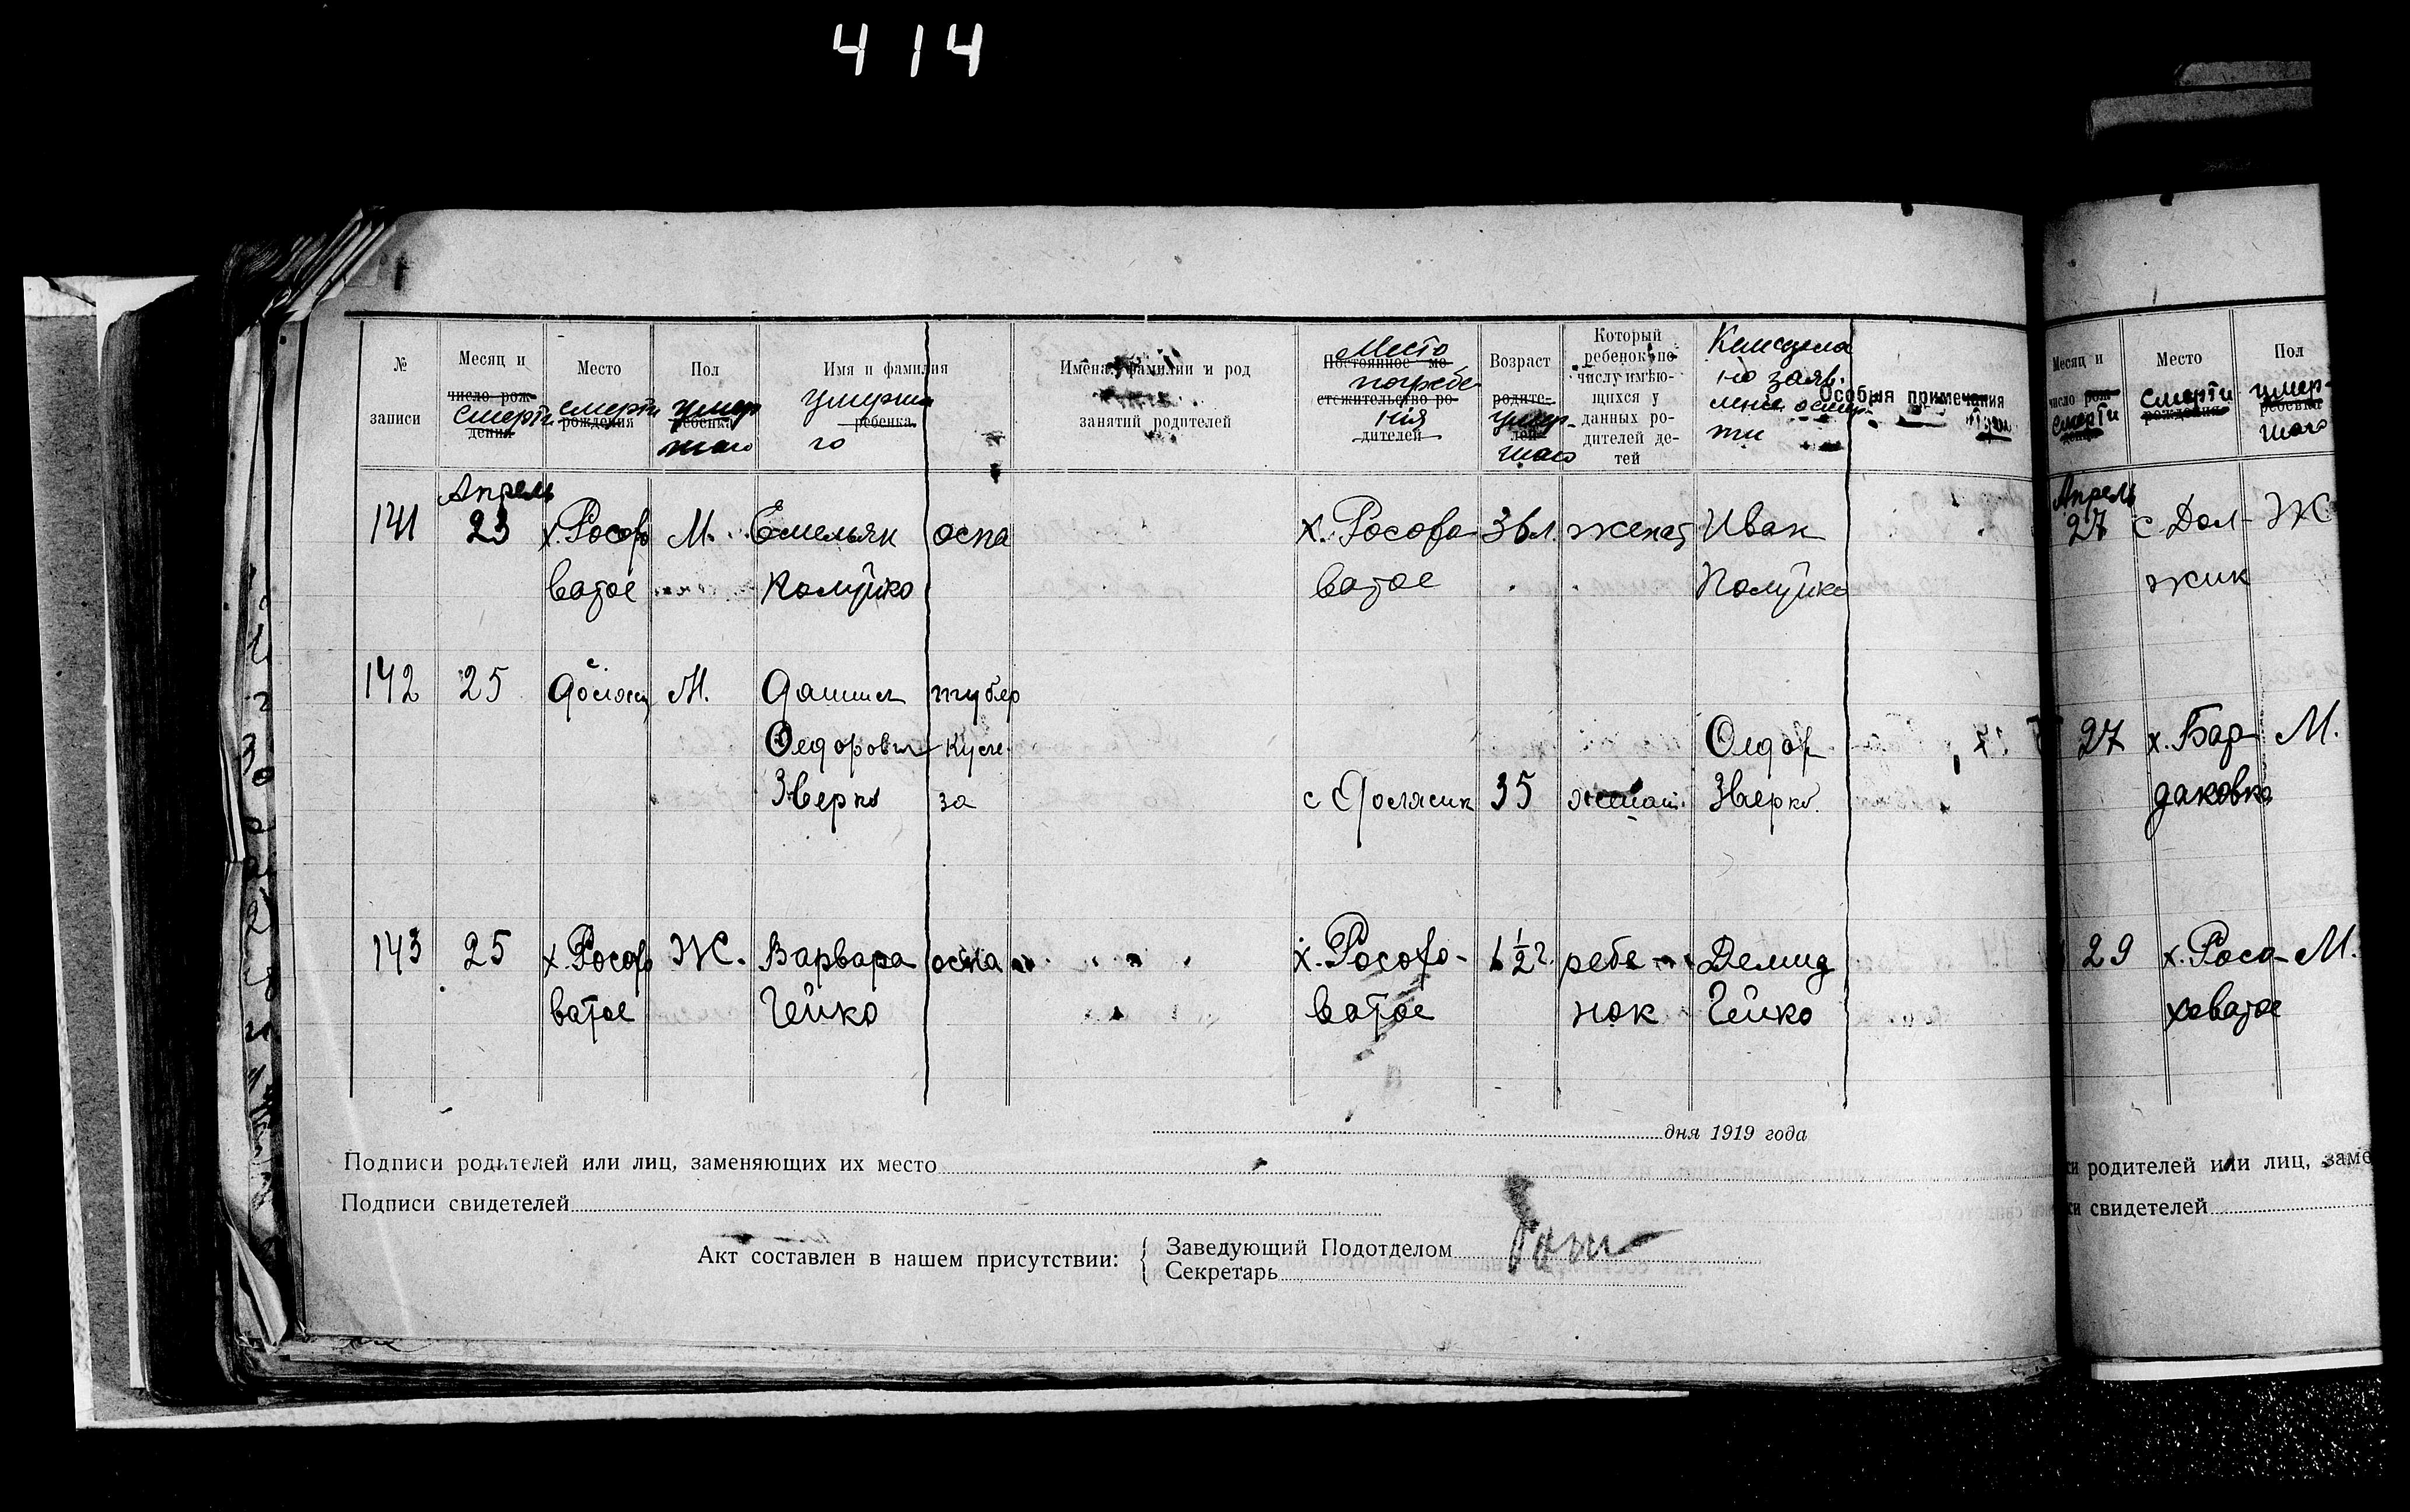 414
№ записи
Месяц и число рож- дения смерти
Место рождения смерти
Пол ребенка умер шаго
Имя и фамилия ребенка умерша го
Имена, фамилии и род занятий родителей
Постоянное ме- стожительство ро- дителей Место погребе ния
Возраст родите- лей умер- шаго
Который ребенок по числу имею- щихся у данных ро- дителей де- тей
но заяв.
Особыя примечания
Апрель
141 23 х. Росохо М. Емельян оспа х. Росохо- 36 л. женат Иван
ватое Полуйко ватое Полуйко
с.
142 25 Должик М. Даниил тубер
Федорович куле- Федор
Зверко за с Должик 35 женат. Зверко.
143 25 х. Росохо Ж. Варвара оспа х. Росохо- 1 1/2 г. ребе- Демид
ватое Гейко ватое нок Гейко
дня 1919 года
Подписи родителей или лиц, заменяющих их место
Подписи свидетелей
Акт составлен в нашем присутствии:
Заведующий Подотделом
Секретарь
Месяц и число рож- дения смерти
Место рождения смерти
Пол ребенка умер- шаго
Апрель
27 с Дол- Ж
жик
27 х. Бар- М.
даковка
29 х. Росо- М.
ховатое
родителей или лиц, заме
свидетелей